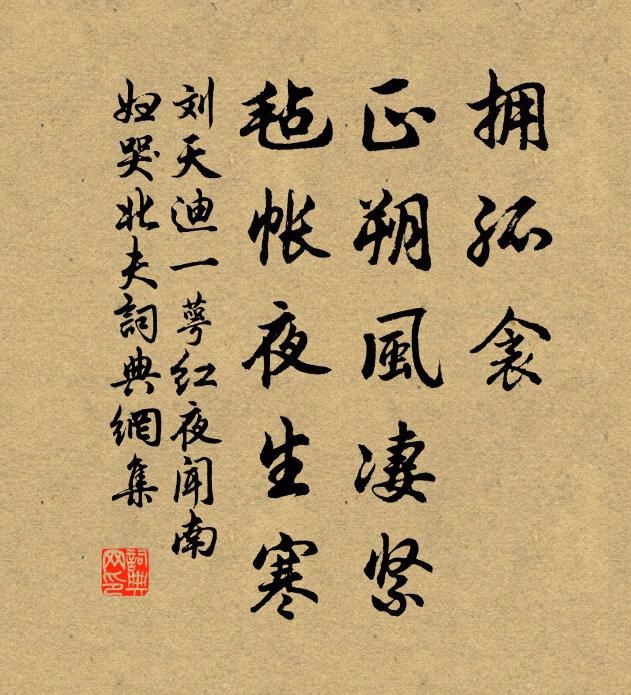 拥孤衾
正朔風凄紧
毡帐夜生寒
刘天迪一萼红夜闻南
妇哭北夫詞典網集
詞典网印